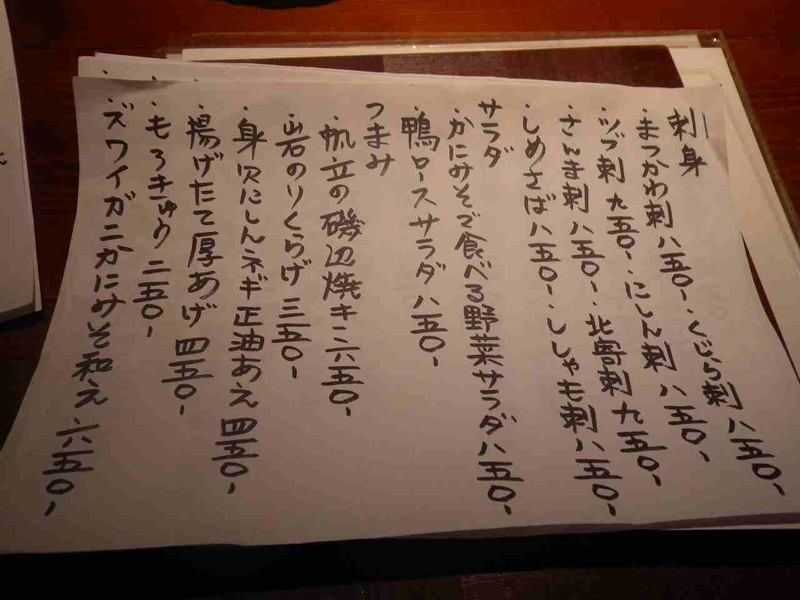 刺身
・まつかわ刺 八五〇-・くじら刺 八五〇-
・ツブ刺 九五〇-・にしん刺 八五〇-
・さんま刺 八五〇-・北寄刺 九五〇-
・しめさば 八五〇-・ししゃも刺 八五〇-
サラダ
・かにみそで食べる野菜サラダ 八五〇-
・鴨ロースサラダ 八五〇-
つまみ
・帆立の磯辺焼き 六五〇-
・岩のりくらげ 三五〇-
・身欠にしんネギ正油あえ 四五〇-
・揚げたて厚あげ 四五〇-
・もろきゅう 二五〇-
・ズワイガニかにみそ和え 六五〇-